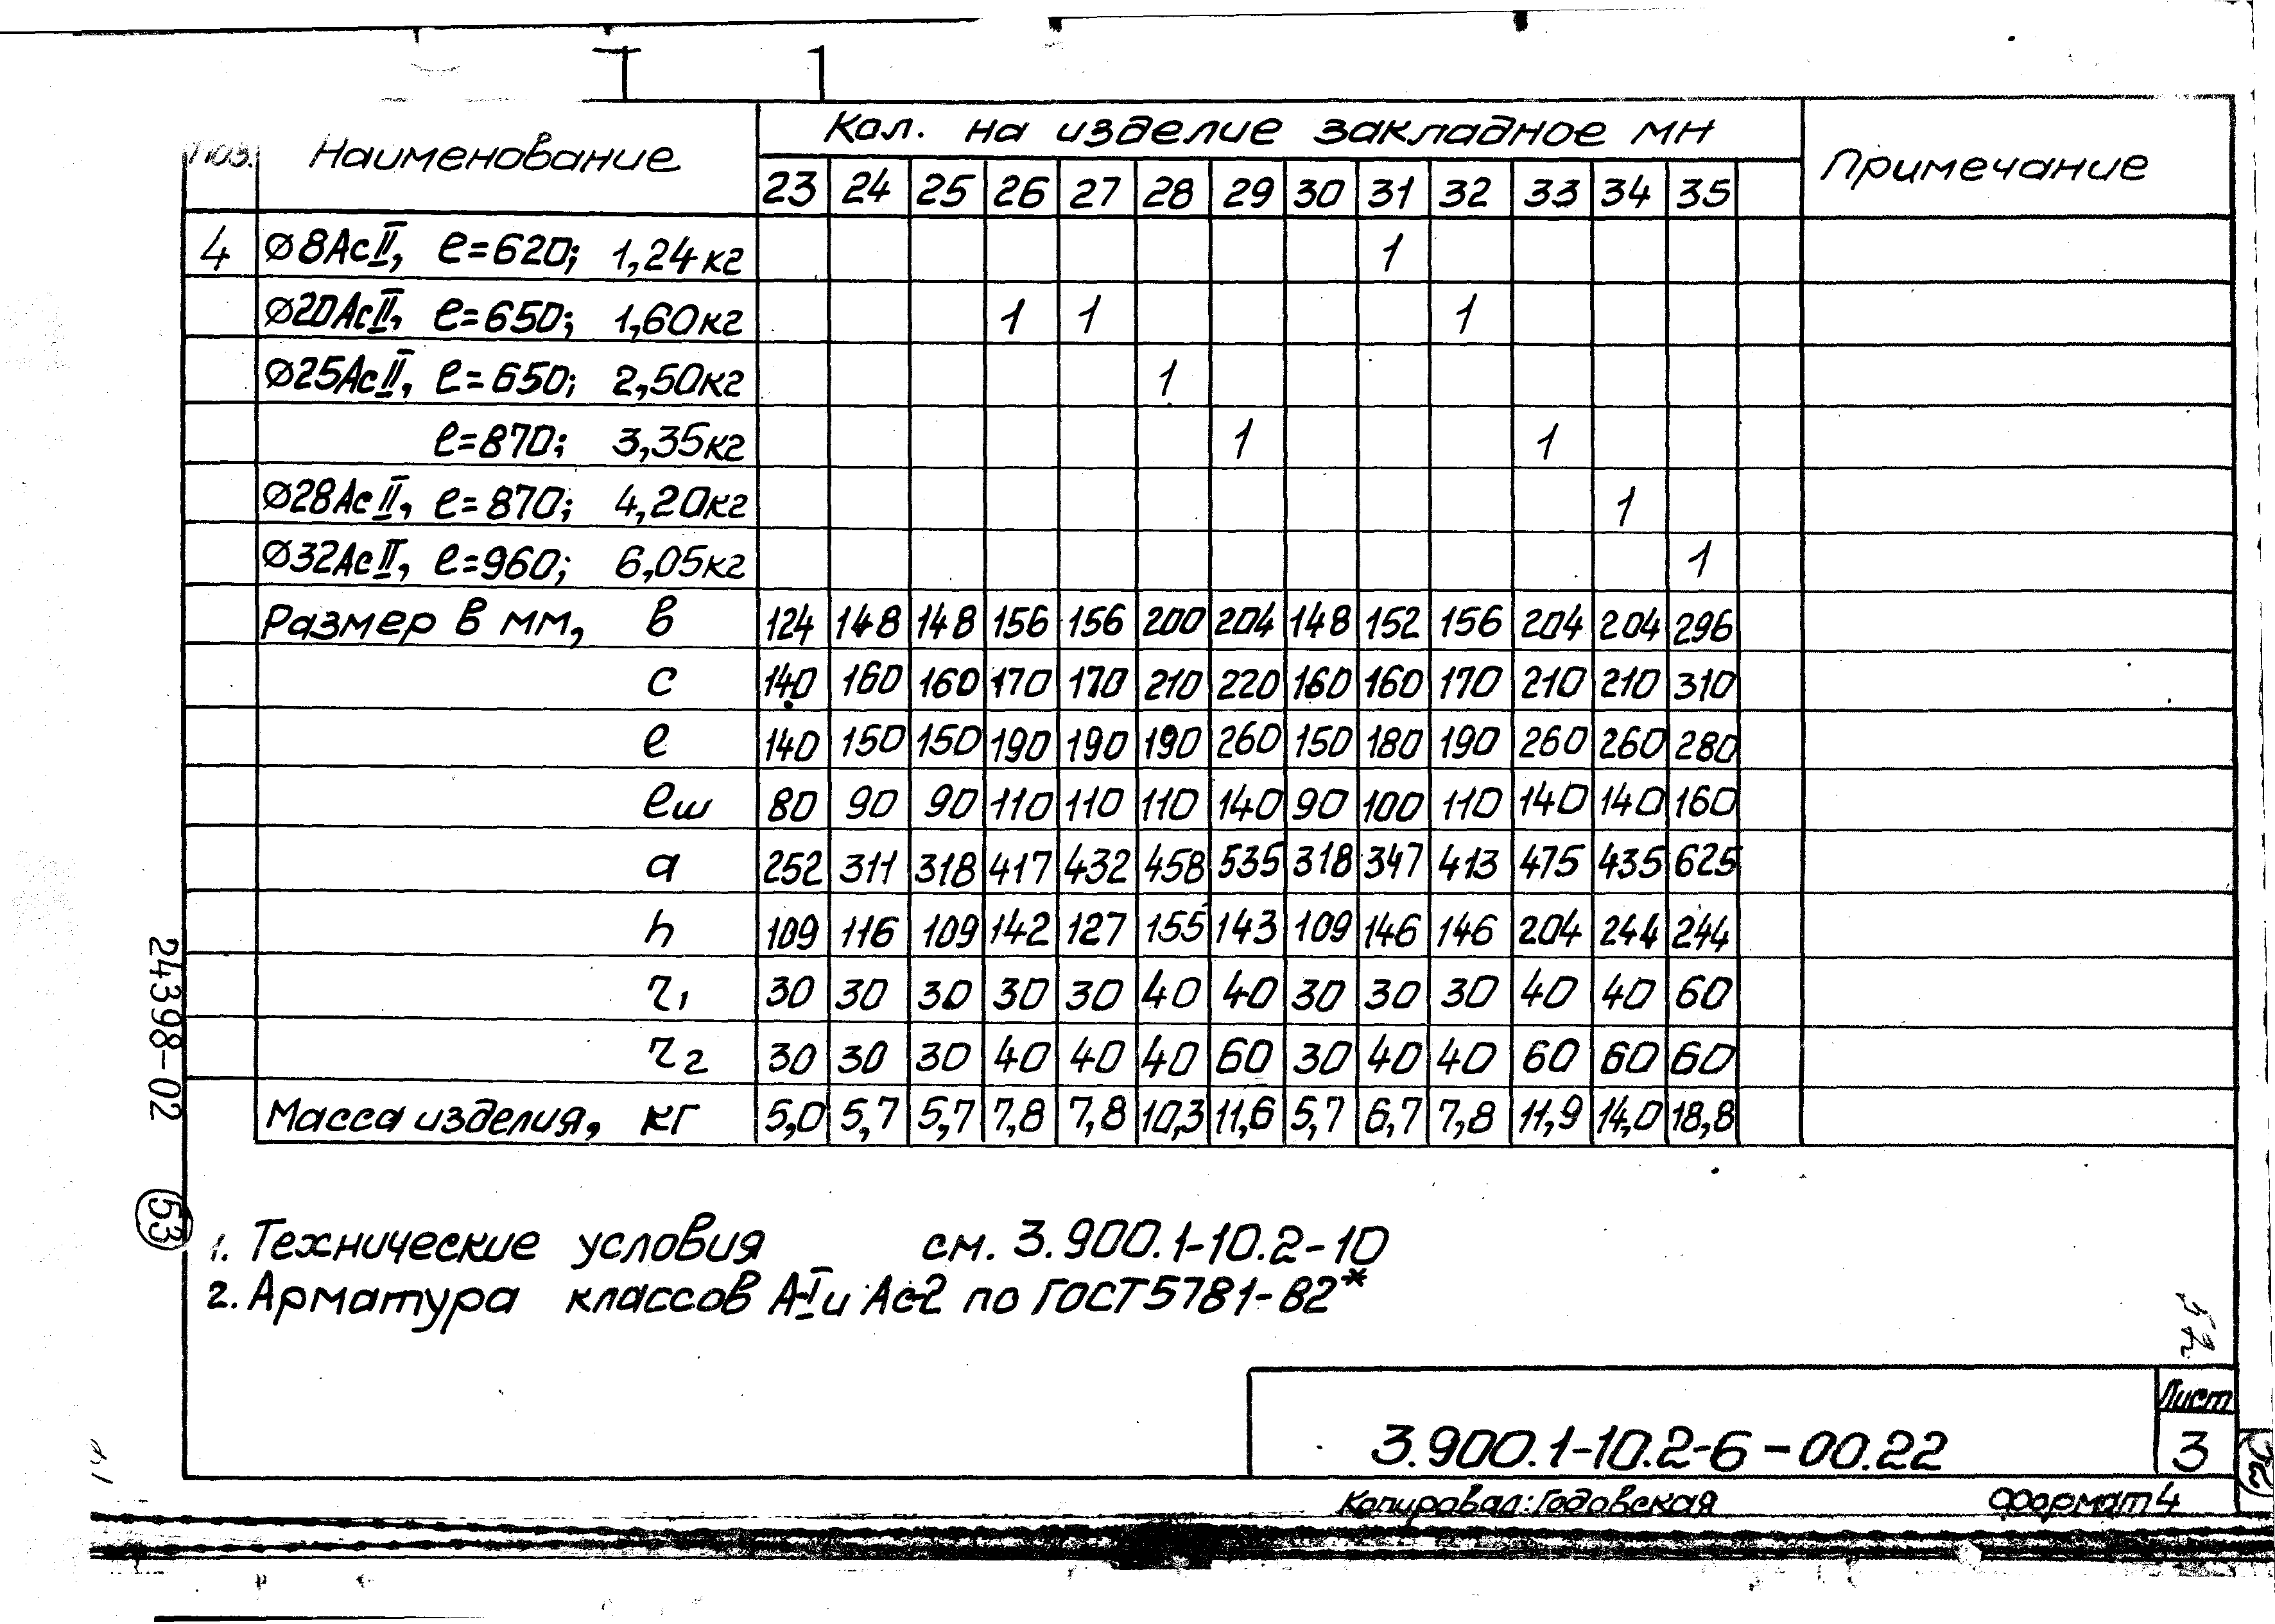 Поз. Наименование Кол. на изделие закладное МН Примечание
23 24 25 26 27 28 29 30 31 32 33 34 35
4 ⌀8АсII, ℓ=620; 1,24кг 1
⌀20АсII, ℓ=650; 1,60кг 1 1 1
⌀25АсII, ℓ=650; 2,50кг 1
ℓ=870; 3,35кг 1 1
⌀28АсII, ℓ=870; 4,20кг 1
⌀32АсII, ℓ=960; 6,05кг 1
Размер в мм, в 124 148 148 156 156 200 204 148 152 156 204 204 296
с 140 160 160 170 170 210 220 160 160 170 210 210 310
ℓ 140 150 150 190 190 190 260 150 180 190 260 260 280
ℓш 80 90 90 110 110 110 140 90 100 110 140 140 160
а 252 311 318 417 432 458 535 318 347 413 475 435 625
h 109 116 109 142 127 155 143 109 146 146 204 244 244
r₁ 30 30 30 30 30 40 40 30 30 30 40 40 60
r₂ 30 30 30 40 40 40 60 30 40 40 60 60 60
Масса изделия, кг 5,0 5,7 5,7 7,8 7,8 10,3 11,6 5,7 6,7 7,8 11,9 14,0 18,8
24398-02
53
1. Технические условия см. 3.900.1-10.2-10
2. Арматура классов А-I и Ас-2 по ГОСТ5781-82*
Лист
3.900.1-10.2-6-00.22 3
Копировал: Годовская Формат4